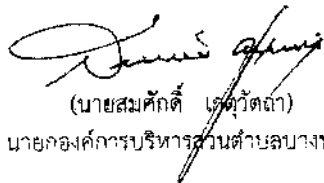 (นายสมศักดิ์ เกตุวัตถา)
นายกองค์การบริหารส่วนตำบลบาง